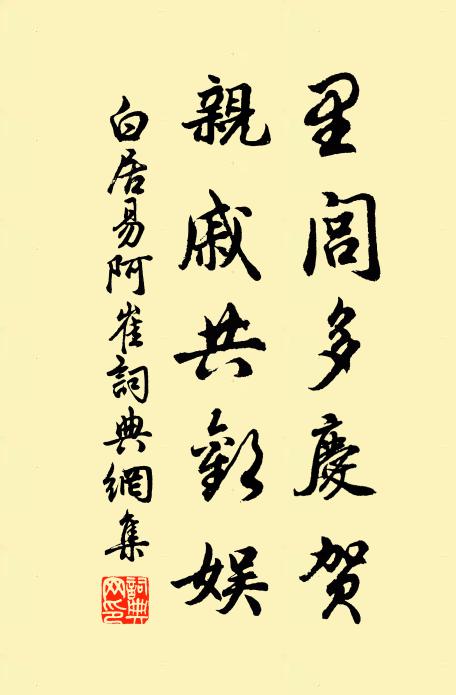 里閭多慶賀
親戚共歡娛
白居易阿崔詞典網集
詞典網印